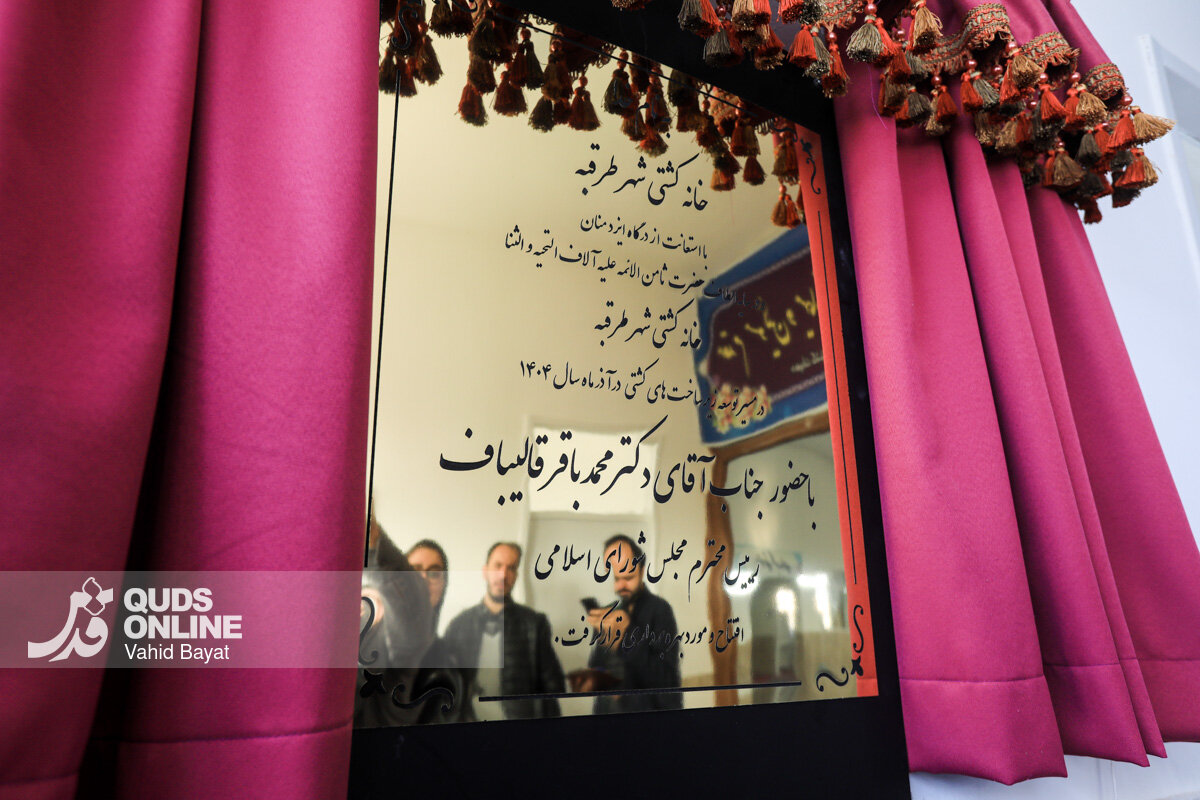 خانه کشتی شهر طرقبه
با استعانت از درگاه ایزد منان
الطاف حضرت ثامن الائمه علیه آلاف التحیه و الثنا
خانه کشتی شهر طرقبه
در مسیر توسعه زیرساخت‌های کشتی در آذر ماه سال ۱۴۰۴
با حضور جناب آقای دکتر محمدباقر قالیباف
رییس محترم مجلس شورای اسلامی
افتتاح و مورد بهره برداری قرار گرفت.
قدس
QUDS
ONLINE
Vahid Bayat